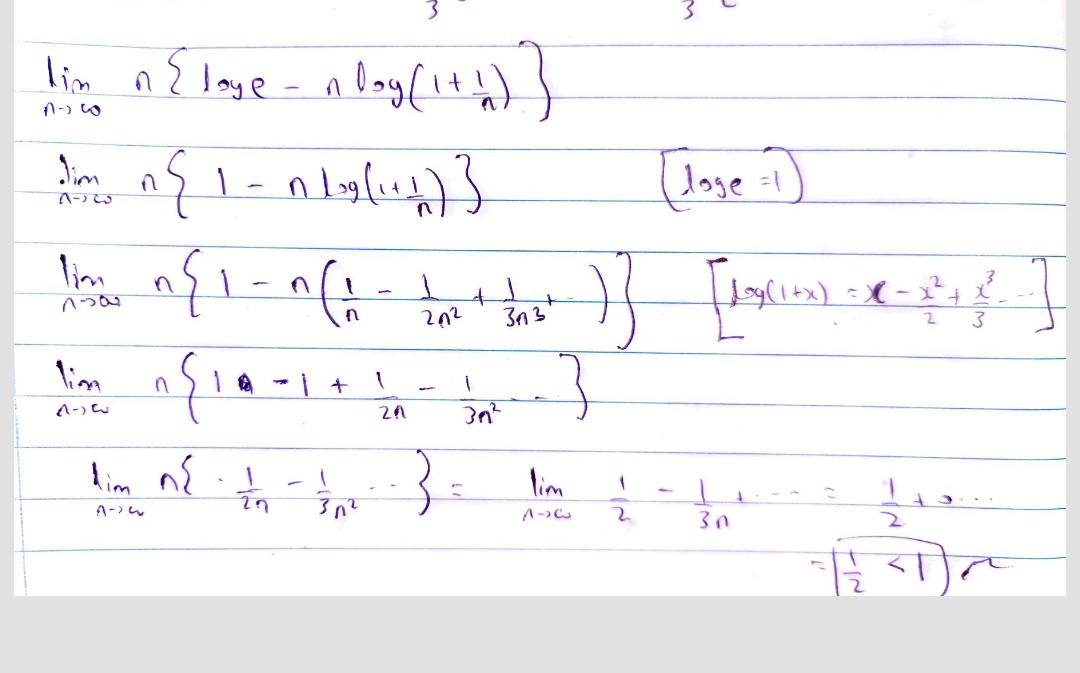 3 3
lim n→∞ n { loge - n log(1 + 1/n) }
lim n→∞ n { 1 - n log(1 + 1/n) } [loge = 1]
lim n→∞ n { 1 - n ( 1/n - 1/2n² + 1/3n³ + .. ) } [ log(1+x) = x - x²/2 + x³/3 - ... ]
lim n→∞ n { 1 - 1 + 1/2n - 1/3n² - .. }
lim n→∞ n { 1/2n - 1/3n² ... } = lim n→∞ 1/2 - 1/3n + ..... = 1/2 + 0....
= [1/2 < 1]